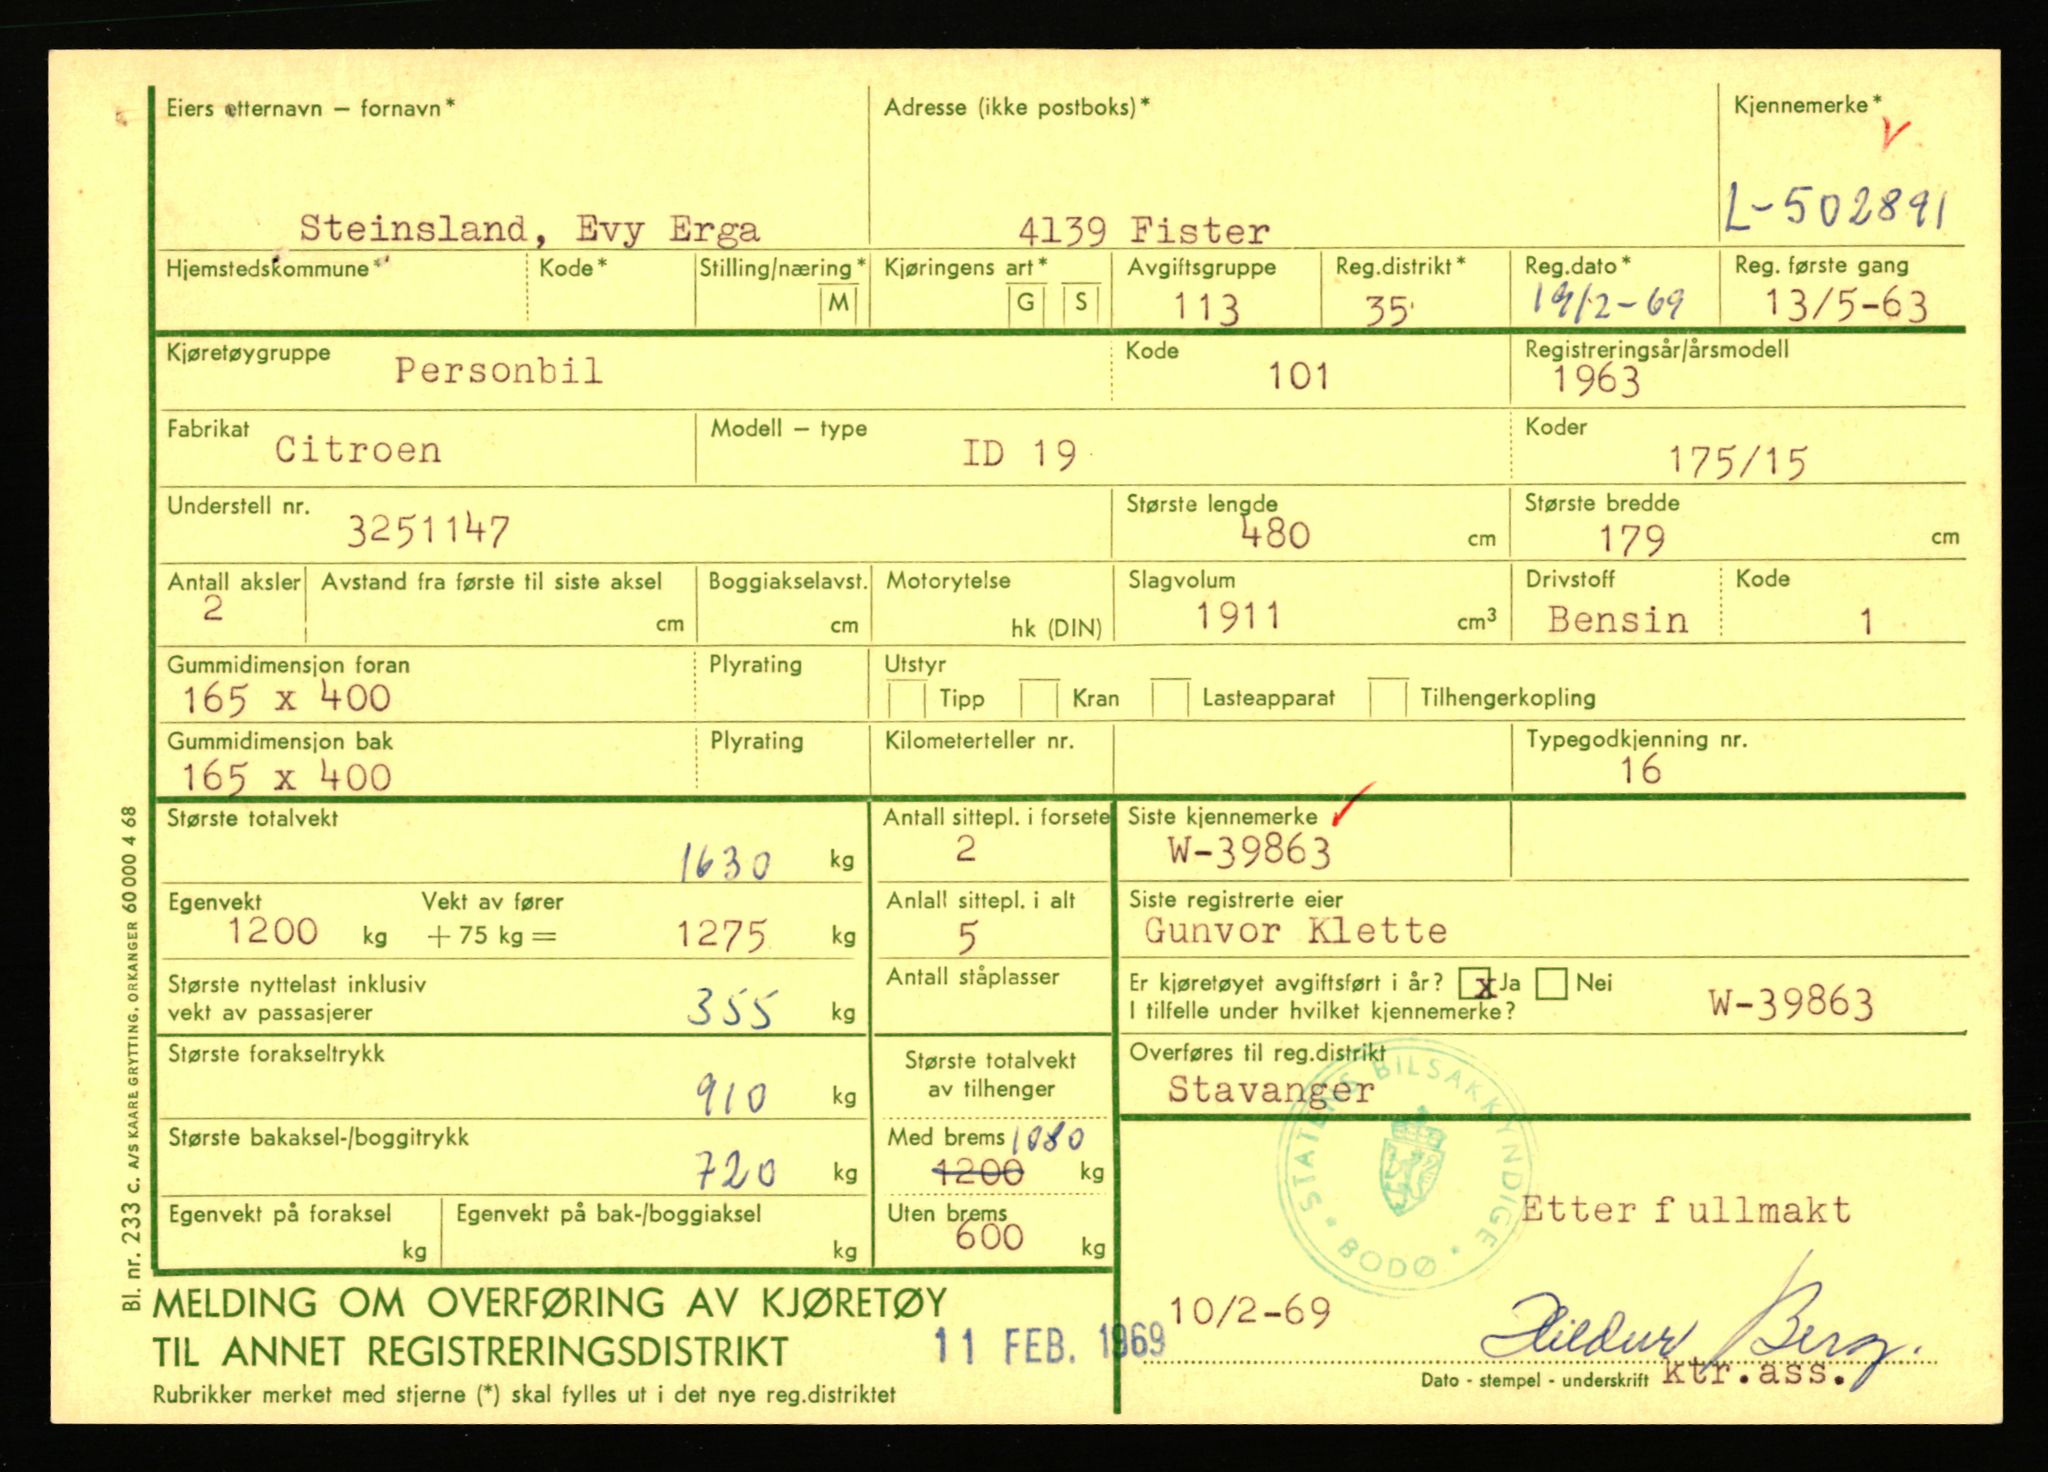 Eiers etternavn – fornavn* Adresse (ikke postboks)* Kjennemerke*
L-502891
Steinsland, Evy Erga 4139 Fister
Hjemstedskommune* Kode* Stilling/næring* Kjøringens art* Avgiftsgruppe Reg.distrikt* Reg.dato* Reg. første gang
M G S 113 35 19/2-69 13/5-63
Kjøretøygruppe Kode Registreringsår/årsmodell
Personbil 101 1963
Fabrikat Modell – type Koder
Citroen ID 19 175/15
Understell nr. Største lengde Største bredde
3251147 480 cm 179 cm
Antall aksler Avstand fra første til siste aksel Boggiakselavst. Motorytelse Slagvolum Drivstoff Kode
2 cm cm hk (DIN) 1911 cm³ Bensin 1
Gummidimensjon foran Plyrating Utstyr
165 x 400 Tipp Kran Lasteapparat Tilhengerkopling
Gummidimensjon bak Plyrating Kilometerteller nr. Typegodkjenning nr.
165 x 400 16
Største totalvekt Antall sittepl. i forsete Siste kjennemerke
1630 kg 2 W-39863
Egenvekt Vekt av fører Anlall sittepl. i alt Siste registrerte eier
1200 kg + 75 kg = 1275 kg 5 Gunvor Klette
Største nyttelast inklusiv Antall ståplasser Er kjøretøyet avgiftsført i år? x Ja Nei
vekt av passasjerer 355 kg I tilfelle under hvilket kjennemerke? W-39863
Største forakseltrykk Største totalvekt Overføres til reg.distrikt
910 kg av tilhenger Stavanger
Største bakaksel-/boggitrykk Med brems 1080
720 kg 1200 kg
STATENS BILSAKKYNDIGE * BODØ *
Egenvekt på foraksel Egenvekt på bak-/boggiaksel Uten brems Etter fullmakt
kg kg 600 kg
MELDING OM OVERFØRING AV KJØRETØY
10/2-69 Hildur Berg.
TIL ANNET REGISTRERINGSDISTRIKT 11 FEB. 1969
Dato - stempel - underskrift ktr.ass.
Rubrikker merket med stjerne (*) skal fylles ut i det nye reg.distriktet
Bl. nr. 233 c. A/S KAARE GRYTTING, ORKANGER 60 000 4 68